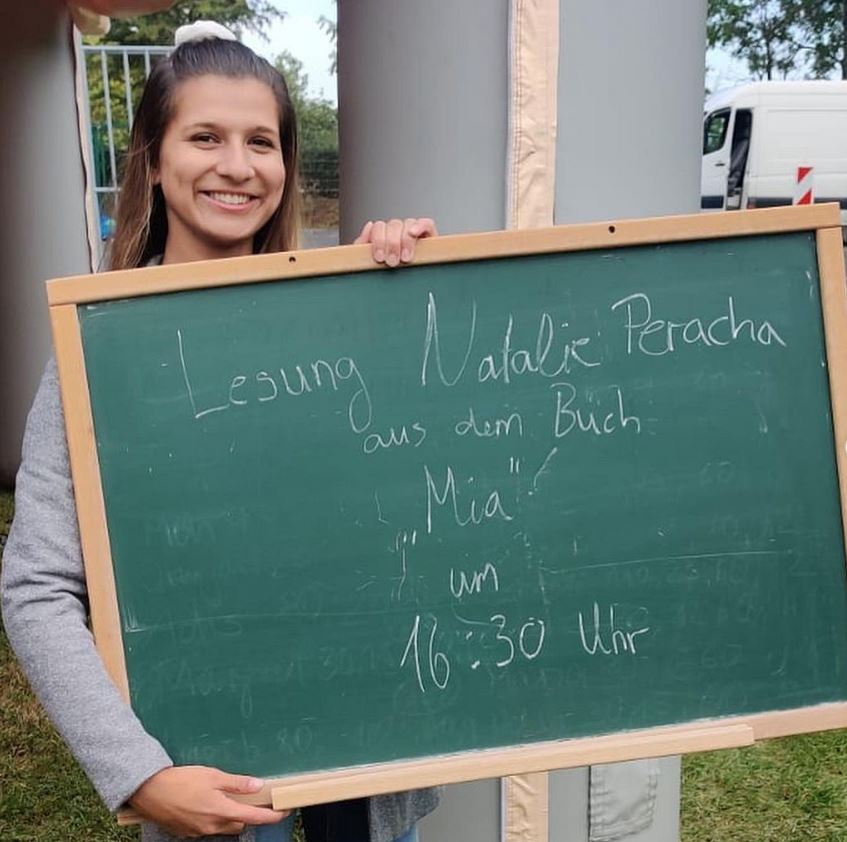 Lesung Natalie Peracha
aus dem Buch
„Mia"
um
16:30 Uhr